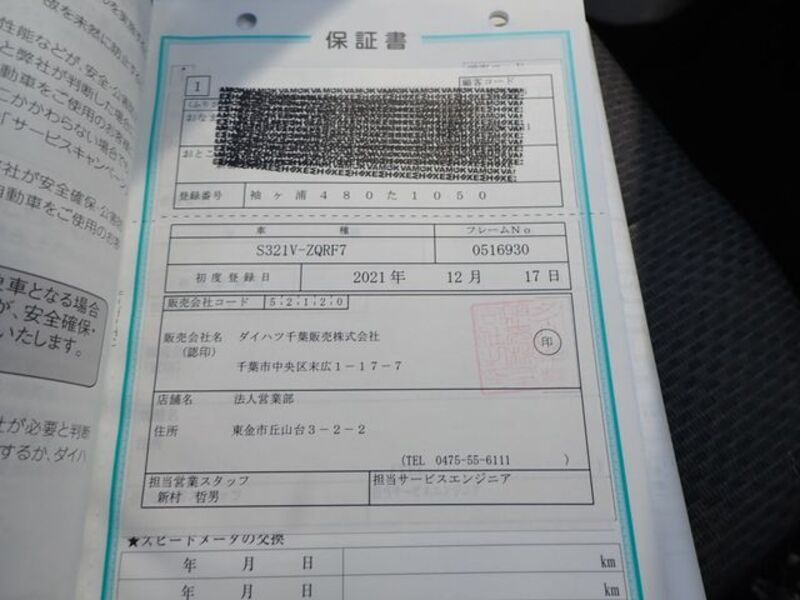 性能などが、安全・公害
と弊社が判断した場合
動車をご使用のお客様
にかかわらない場合で
「サービスキャンペーン
が安全確保・公害
自動車をご使用のお客
車となる場合
が、安全確保・
いたします。
が必要と判断
するか、ダイハ
保証書
1
顧客コード
登録番号 袖ヶ浦480た1050
車種 フレームNo
S321V-ZQRF7 0516930
初度登録日 2021年 12月 17日
販売会社コード 52120
販売会社名 ダイハツ千葉販売株式会社
(認印) 印
千葉市中央区末広1-17-7
店舗名 法人営業部
住所 東金市丘山台3-2-2
(TEL 0475-55-6111 )
担当営業スタッフ 担当サービスエンジニア
新村 哲男
★スピードメータの交換
年 月 日 km
年 月 日 km